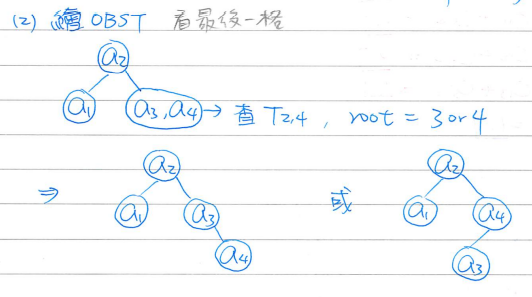 (2) 繪 OBST 看最後一格
a2
a1 a3,a4 → 查 T2,4 , root = 3 or 4
⇒ a2 或 a2
a1 a3 a1 a4
a4 a3